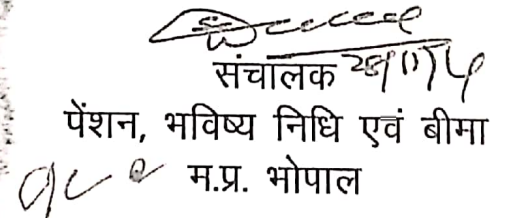 संचालक
पेंशन, भविष्य निधि एवं बीमा
म.प्र. भोपाल